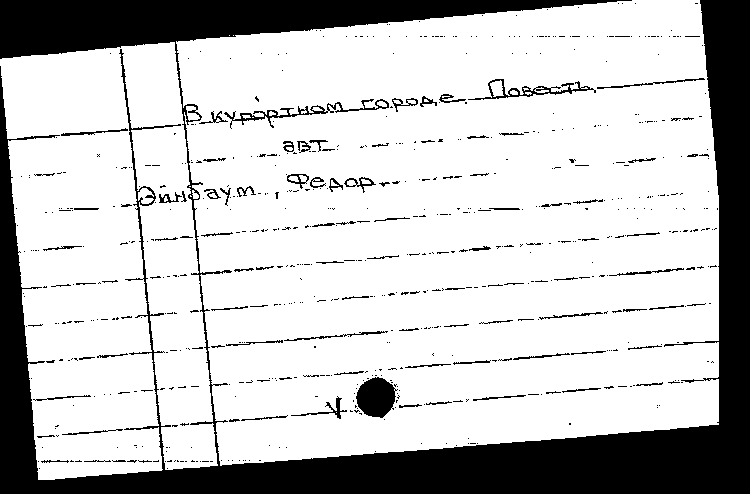 В курортном городе. Повесть.
авт.
Эйнбаум, Федор.
v